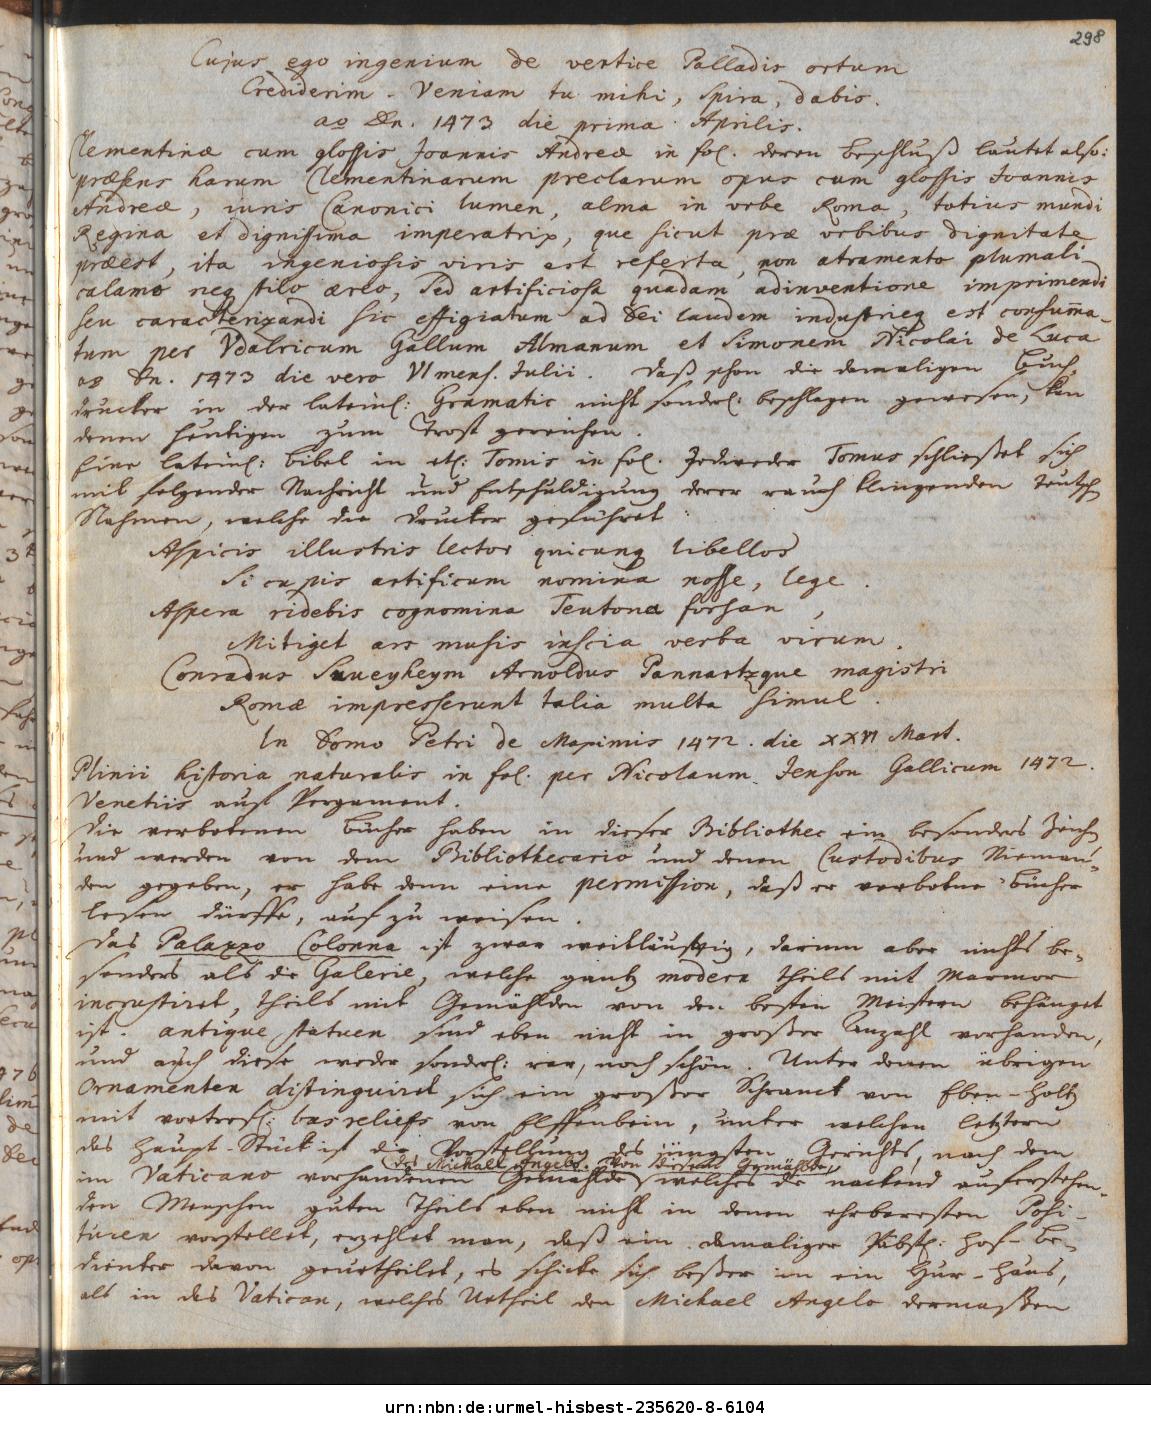 298
Cujus ego ingenium de vertice Palladis ortum
Crediderim. Veniam tu mihi, Spira, dabis.
ao Dn. 1473 die prima Aprilis.
Clementinæ cum glossis Joannis Andreæ in fol. deren Beschluß lautet also:
præsens harum Clementinarum preclarum opus cum glossis Joannis
Andreæ, iuris Canonici lumen, alma in vrbe Roma, totius mundi
Regina et dignissima imperatrix, que sicut præ vrbibus dignitate
præest, ita ingeniosis viris est referta, non atramento plumali
calamo neq stilo æreo, sed artificiosa quadam adinventione imprimendi
seu caracterizandi sic effigiatum ad Dei laudem industrieq est consum̄a-
tum per Vdalricum Gallum Almanum et Simonem Nicolai de Luca
ao Dn. 1473 die vero VI mens. Julii. Daß schon die damaligen Buch-
drucker in der lateinl: Gramatic nicht sonderl: beschlagen gewesen, kan
denen heutigen zum Trost gereichen.
Eine lateinl: Bibel in etl: Tomis in fol. Jedweder Tomus schließet sich
mit folgender Nachricht und Entschuldigung derer rauch klingenden teutsch
Nahmen, welche die Drucker geführet:
Aspicis illustris lector quicunq libellos
Si cupis artificum nomina nosse, lege.
Aspera ridebis cognomina Teutona forsan,
Mitiget ars musis inscia verba virum.
Conradus Suueyheym Arnoldus Pannartzque magistri
Romæ impresserunt talia multa simul.
In domo Petri de Maximis 1472. die XXVI Mart.
Plinii historia naturalis in fol. per Nicolaum Jenson Gallicum 1472.
Venetiis auf Pergament.
Die verbotenen Bücher haben in dieser Bibliothec ein besonders Zeich
und werden von dem Bibliothecario und denen Custodibus Nieman-
den gegeben, er habe denn eine permission, daß er verbotne Bücher
lesen dürffe, auf zu weisen.
Das Palazzo Colonna ist zwar weitläufftig, darinn aber nichts be-
sonders als die Galerie, welche gantz modern theils mit Marmor
incrustiret, theils mit Gemählden von den besten Meistern behänget
ist. antique statuen sind eben nicht in großer Anzahl vorhanden,
und auch diese weder sonderl: rar, noch schön. Unter denen übrigen
Ornamenten distinguiret sich ein großer Schranck von Eben-Holtz
mit vortrefl: bas reliefs von Elffenbein, unter welchen letztern
das Haupt-Stück ist die Vorstellung des jüngsten Gerichts, nach dem
des Michael Angelo. Von diesem Gemählde,
im Vaticano vorhandenen Gemählde welches die nackend auferstehen-
den Menschen guten Theils eben nicht in denen ehrbaresten Posi-
turen vorstellet, erzehlet man, daß ein damaliger Päbstl: Hof-Be-
dienter davon geurtheilet, es schicke sich beßer in ein Hur-Haus,
als in das Vatican, welches Urtheil den Michael Angelo dermaßen
urn:nbn:de:urmel-hisbest-235620-8-6104